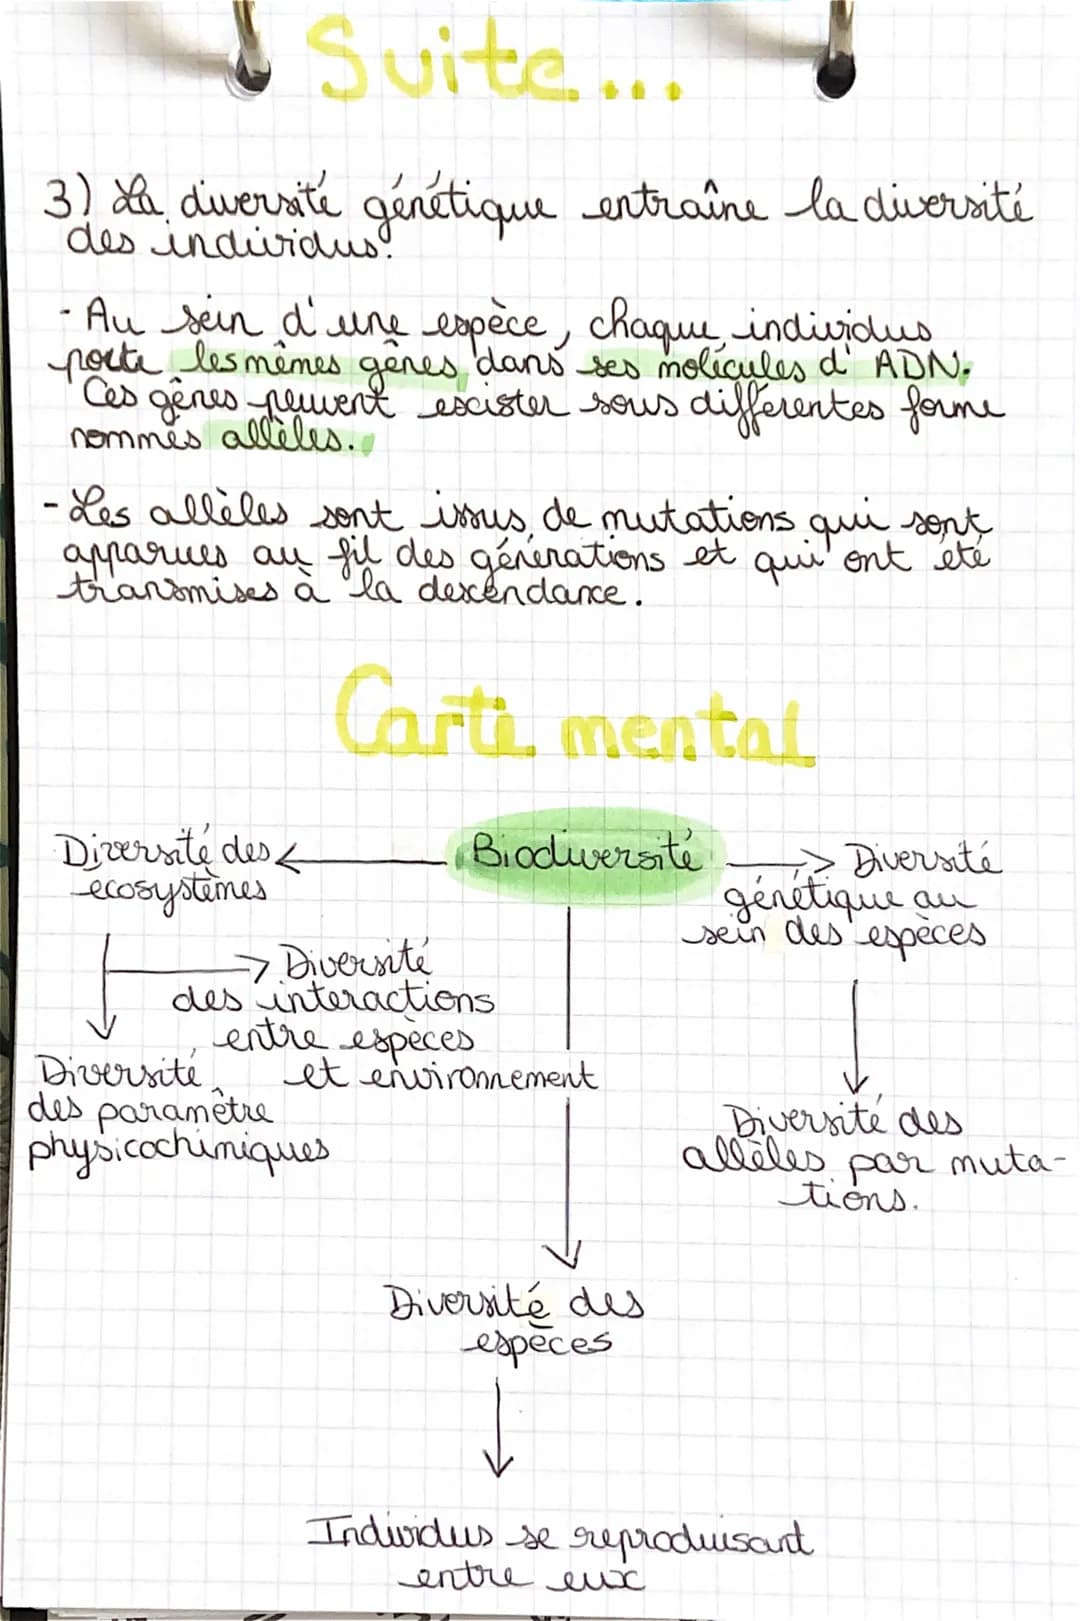 Suite...
3) La diversité génétique entraîne la diversité
des individus.
- Au sein d'une espèce, chaque individus
porte les mêmes gênes dans ses molécules d'ADN.
Ces gênes peuvent escister sous différentes forme
nommés allèles.
- Les allèles sont issus de mutations qui sont
apparues au fil des générations et qui ont été
transmises à la descendance.
Carte mental
Biodiversité
Diversité des
ecosystèmes
Diversité
des interactions
entre espèces
et environnement
Diversité
des paramètre
physicochimiques
Diversité
génétique au
sein des espèces
Diversité des
allèles par muta-
tions.
Diversité des
espèces
Individus se reproduisant
entre eux